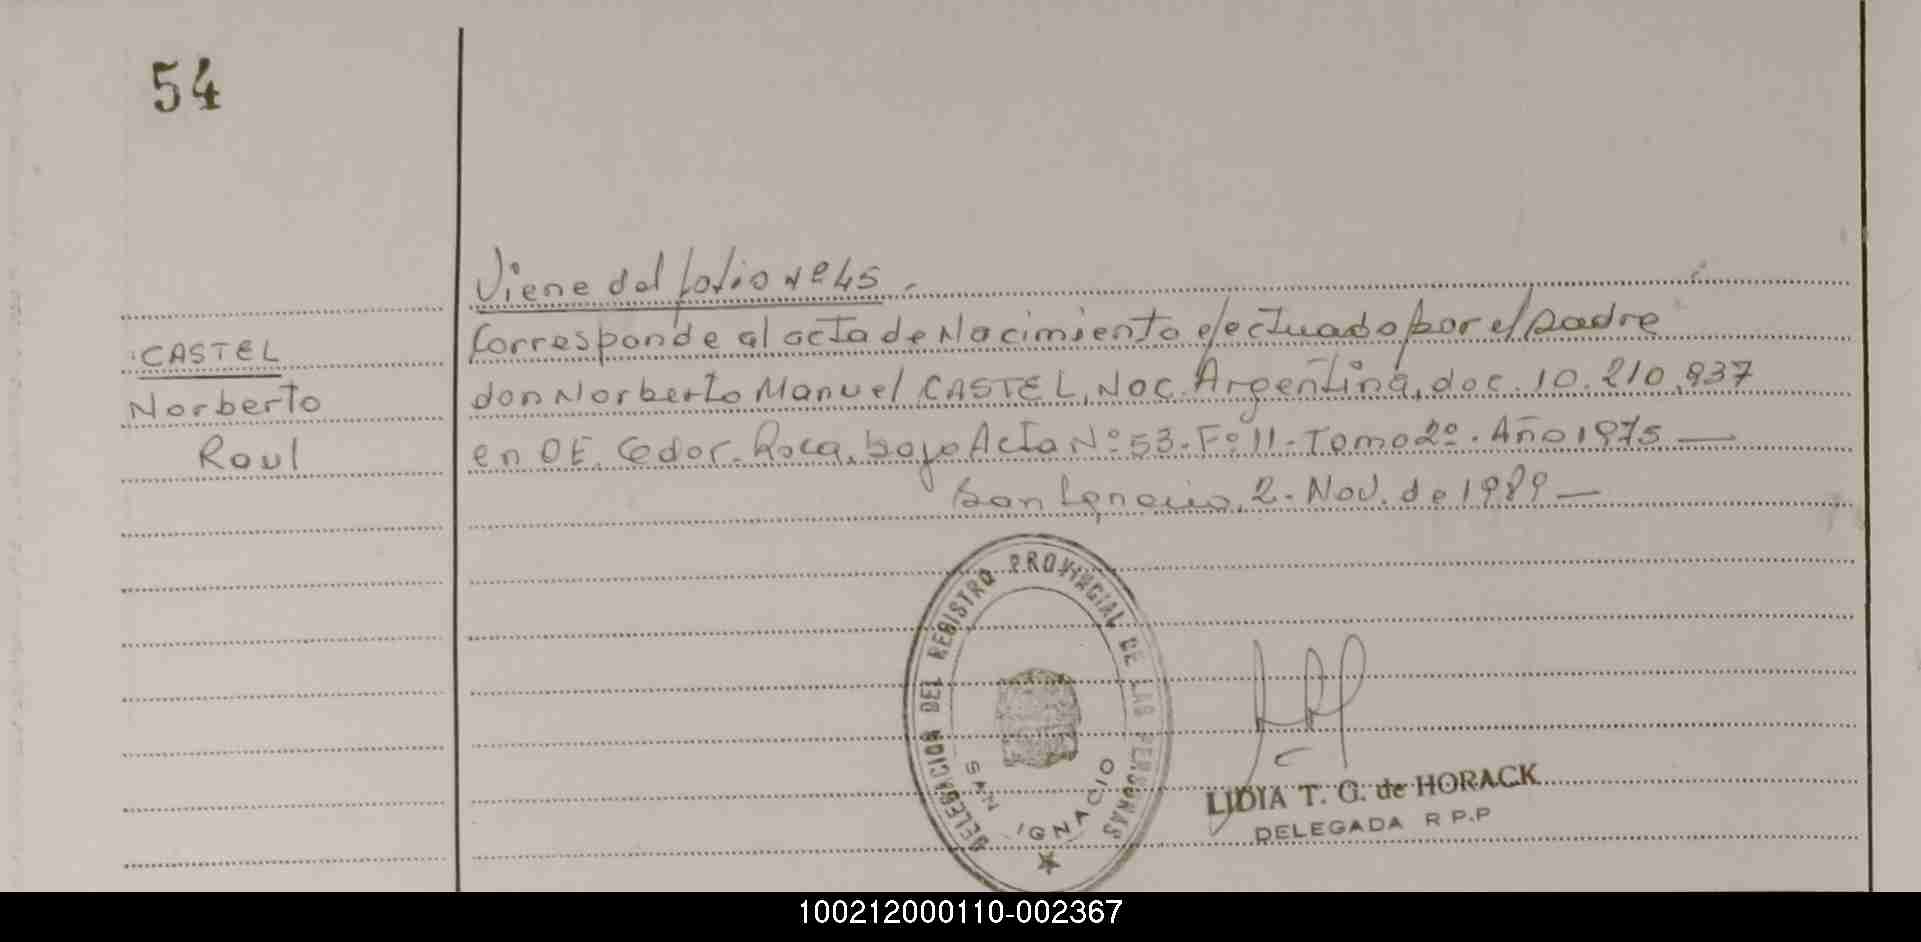 54
Viene del folio Nº 45.
CASTEL
Norberto
Raul
Corresponde al acta de Nacimiento efectuado por el padre
don Norberto Manuel CASTEL, Nac. Argentina, doc. 10.210.937
en OE. Cedor. Roca, bajo Acta Nº 53- Fº 11- Tomo 2º. Año 1975 —
San Ignacio, 2. Nov. de 1989 —
DELEGACION DEL REGISTRO PROVINCIAL DE LAS PERSONAS
SAN IGNACIO
LIDIA T. G. de HORACK
DELEGADA R P.P
100212000110-002367